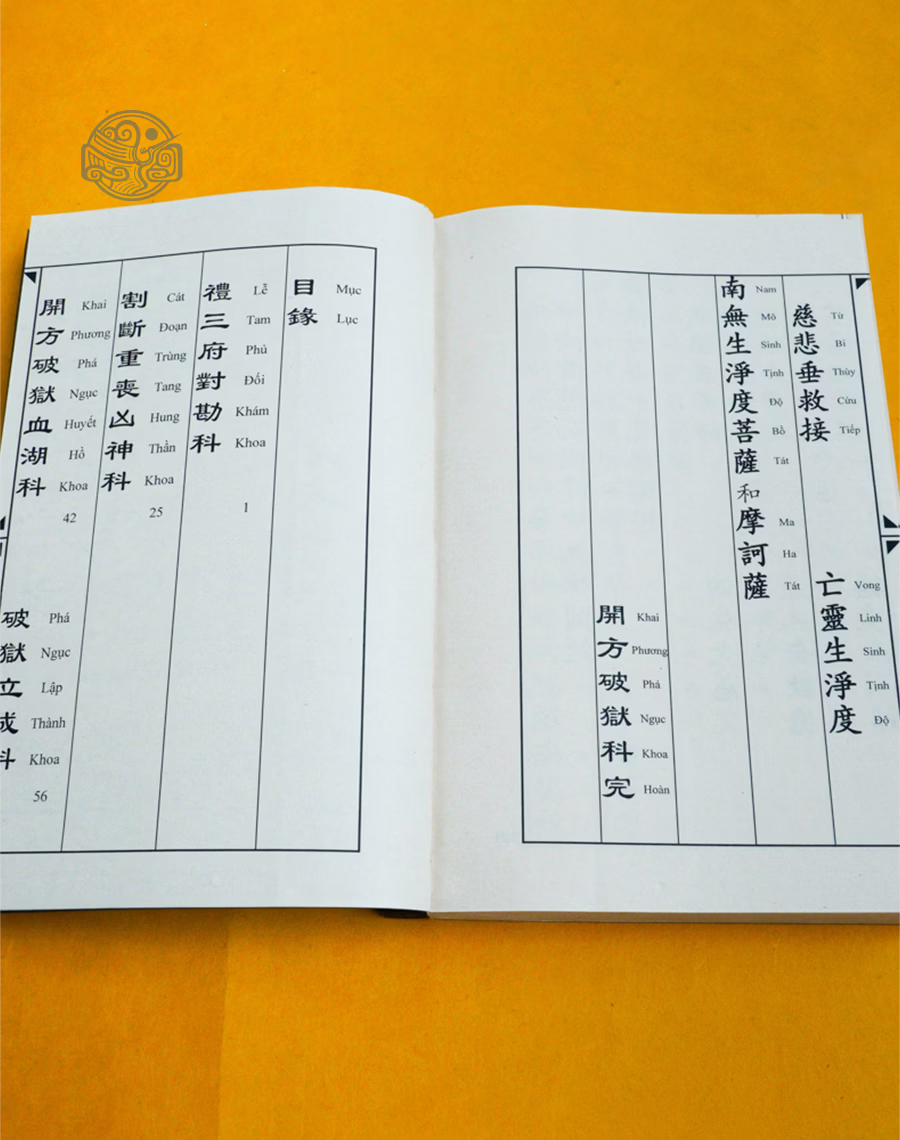 慈悲垂救接
Từ Bi Thùy Cứu Tiếp
亡靈生淨度
Vong Linh Sinh Tịnh Độ
南無生淨度菩薩和摩訶薩
Nam Mô Sinh Tịnh Độ Bồ Tát Ma Ha Tát
開方破獄科完
Khai Phương Phá Ngục Khoa Hoàn
目錄
Mục Lục
禮三府對勘科
Lễ Tam Phủ Đối Khám Khoa
1
割斷重喪凶神科
Cát Đoạn Trùng Tang Hung Thần Khoa
25
開方破獄血湖科
Khai Phương Phá Ngục Huyết Hồ Khoa
42
破獄立成科
Phá Ngục Lập Thành Khoa
56